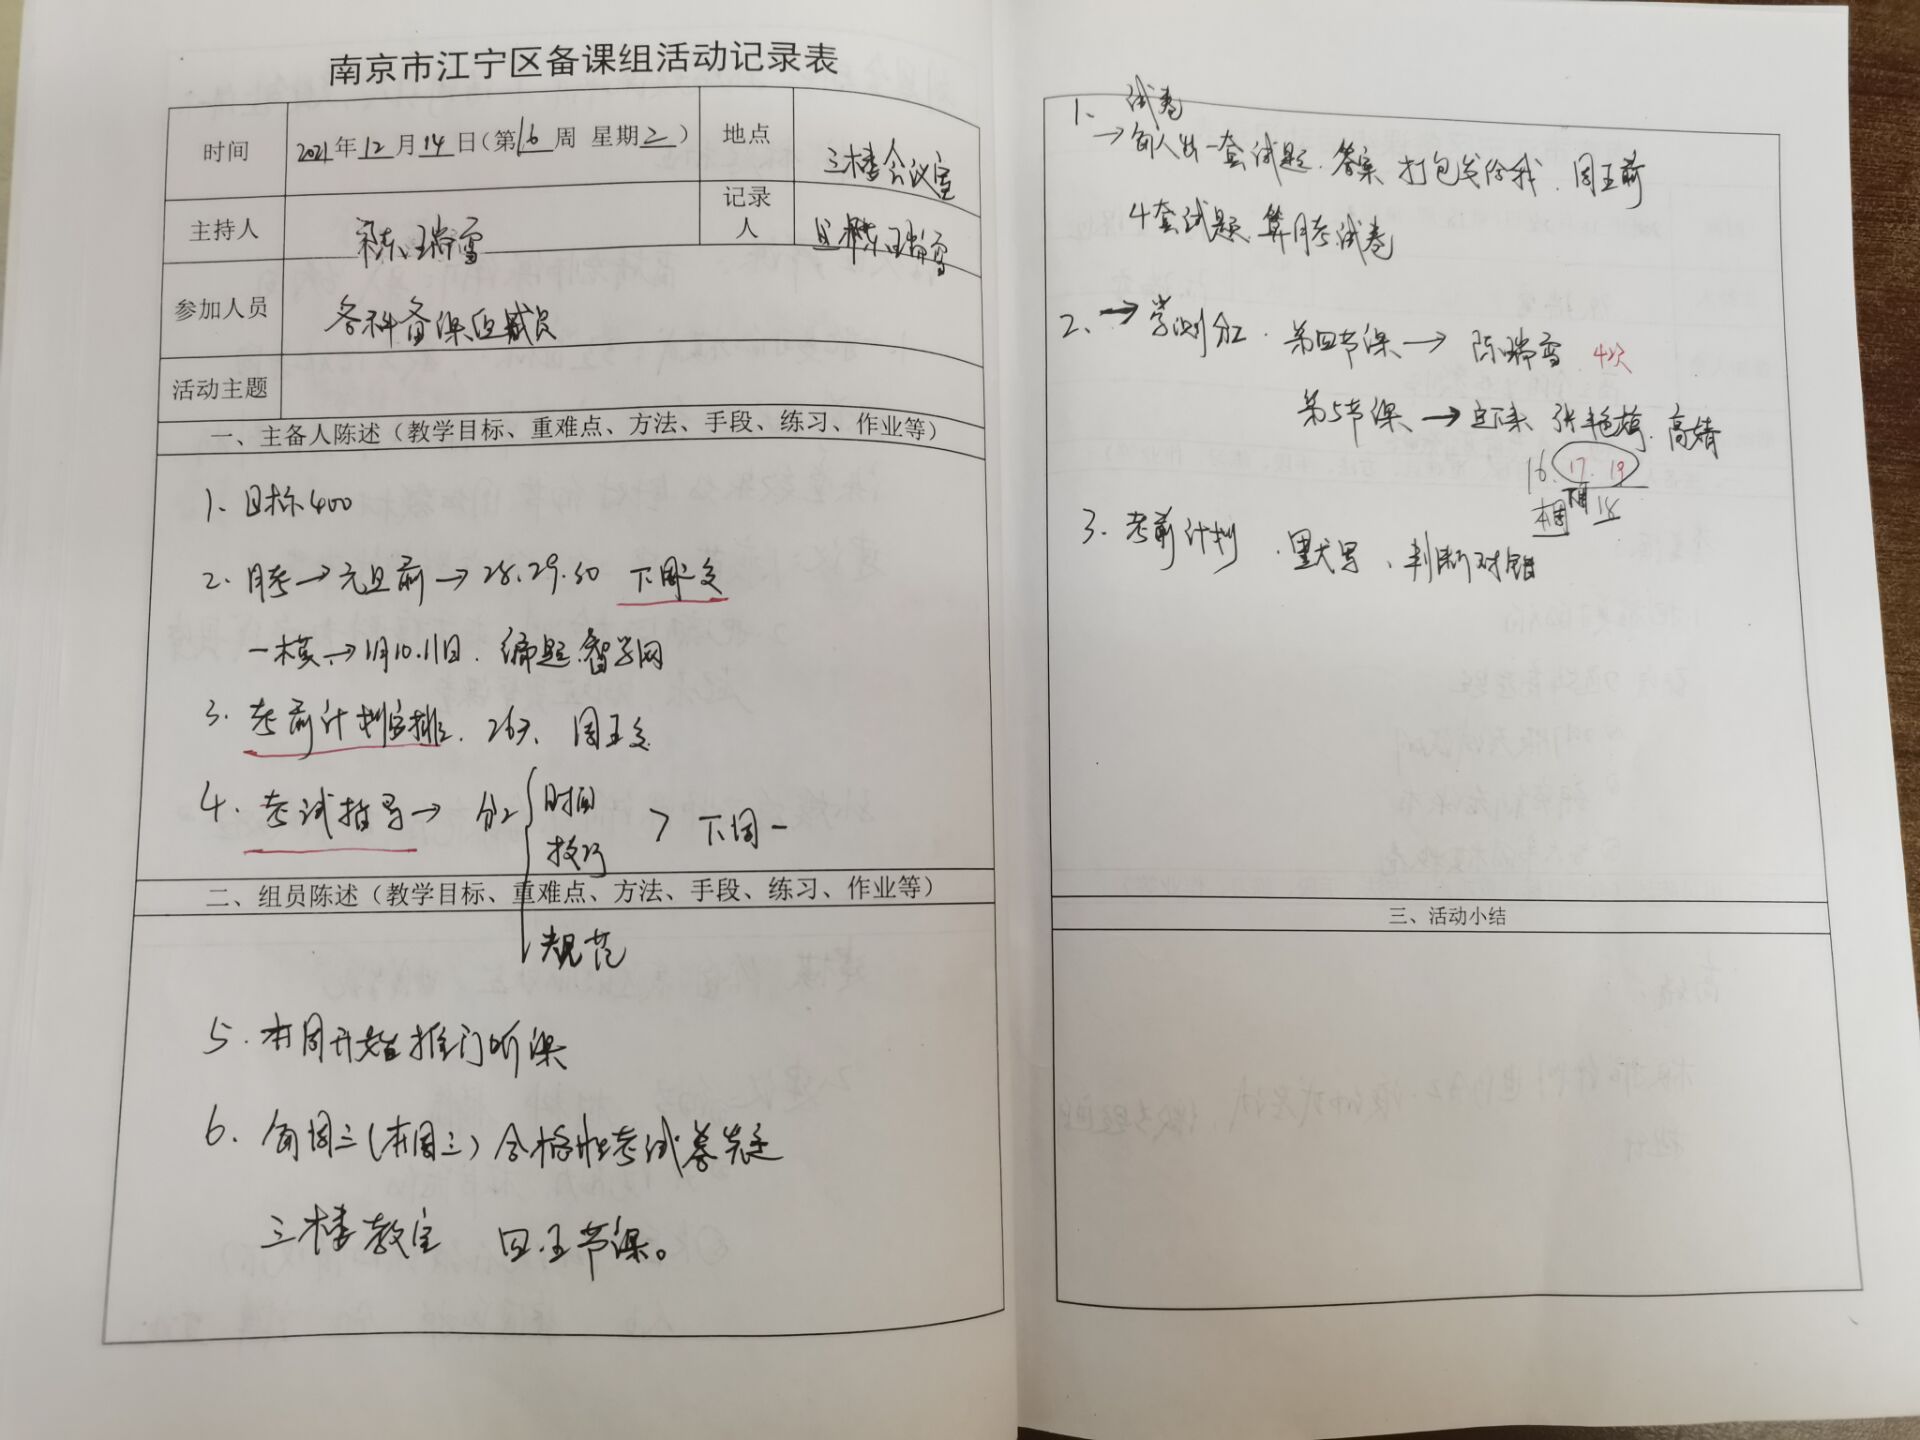 南京市江宁区备课组活动记录表
时间 2021年12月14日(第16周 星期二) 地点 三楼会议室
主持人 记录人
参加人员 各科备课组成员
活动主题
一、主备人陈述（教学目标、重难点、方法、手段、练习、作业等）
1、目标400
2、月考→元旦前→28.29.30 下周交
一模→1月10.11日.编题.智学网
3、考前计划安排、26天、周五交
4、考试指导→ 分
时间
技巧
下周一
二、组员陈述（教学目标、重难点、方法、手段、练习、作业等）
规范
5.本周开始推门听课
6、每周三(本周三)合格性考试
三楼教室 四.五节课。
1、试卷
→每人出一套试题.答案 打包发给我.周五前
4套试题.算月考试卷
2、→学测分工.第四节课→陈瑞雪 4次
第5节课→ 张艳梅.高婧
16.17.19
本周 下周 18
3.考前计划.默写、判断对错
三、活动小结